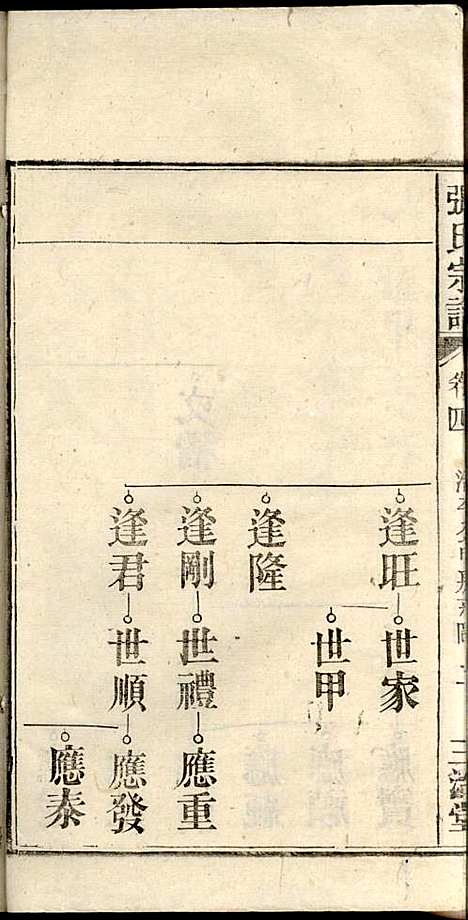 張氏宗譜
卷四
三鑑堂
逢旺
世家
世甲
逢隆
逢剛
世禮
應重
逢君
世順
應發
應泰